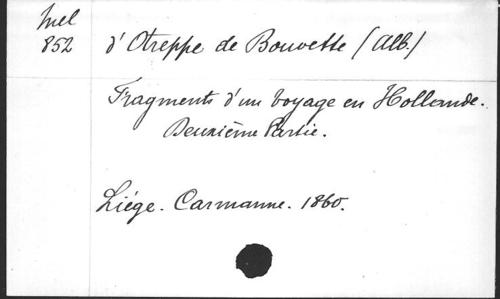 Mel
852
d'Otreppe de Bouvette (Alb.)
Fragments d'un voyage en Hollande.
Deuxième Partie.
Liége. Carmanne. 1860.